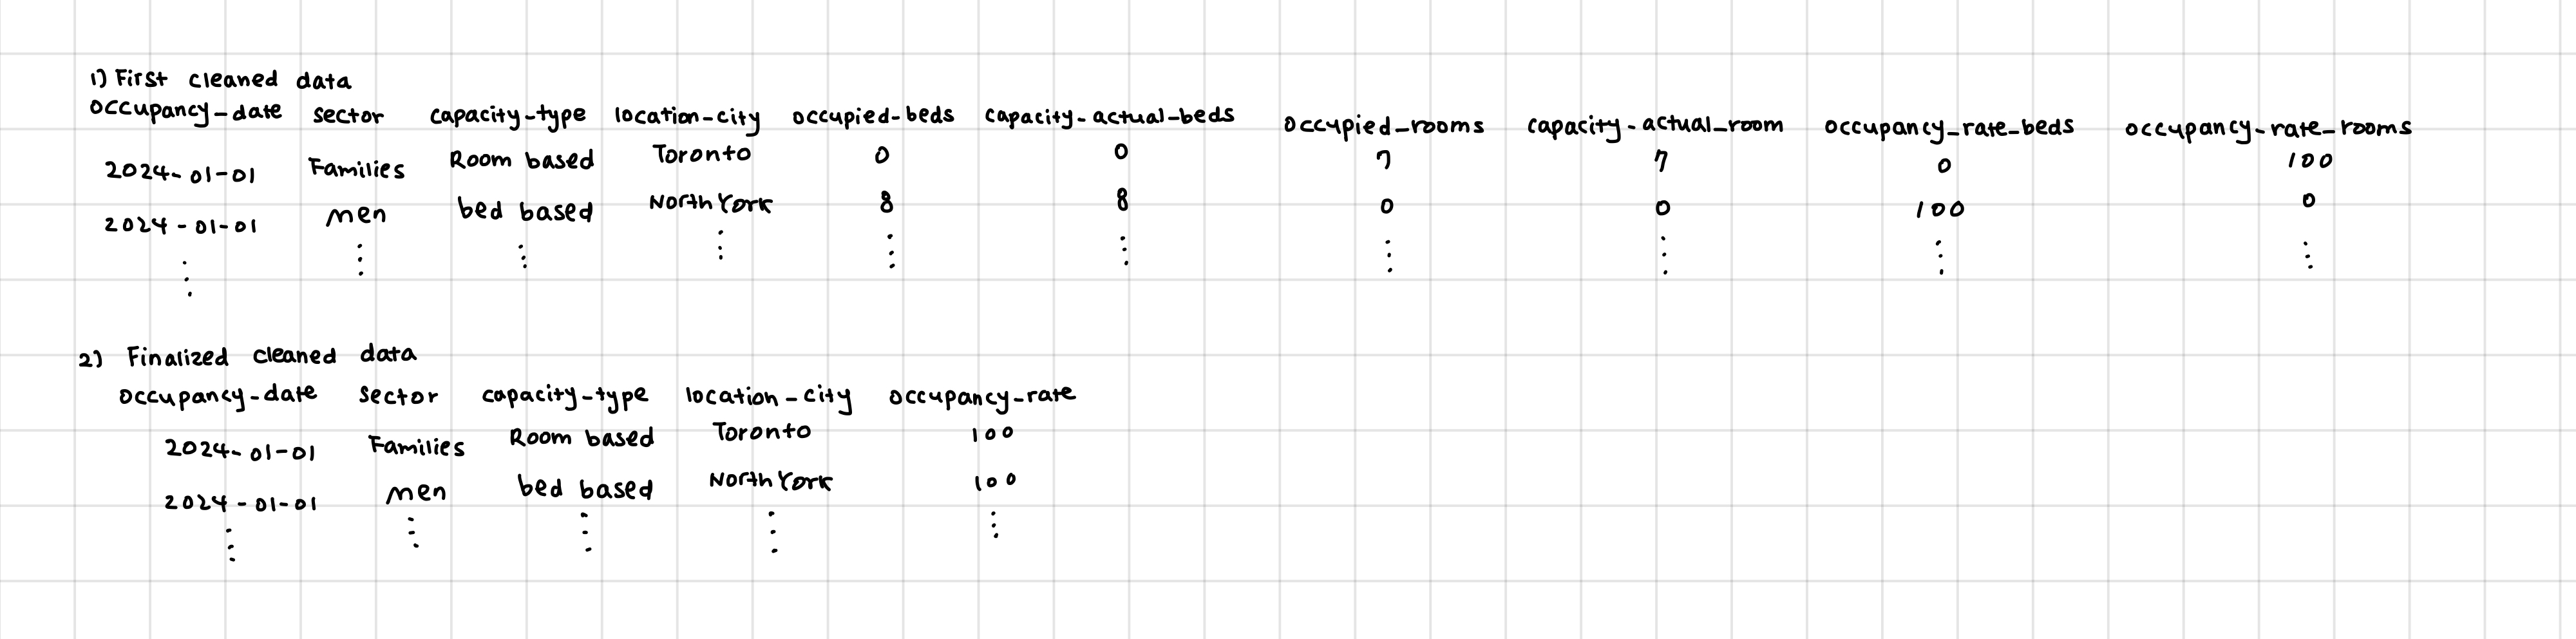 1) First cleaned data
occupancy-date sector capacity-type location-city occupied-beds capacity-actual-beds occupied_rooms capacity-actual_room occupancy_rate_beds occupancy-rate_rooms
2024-01-01 Families Room based Toronto 0 0 7 7 0 100
2024-01-01 men bed based North York 8 8 0 0 100 0
2) Finalized cleaned data
occupancy-date sector capacity-type location-city occupancy-rate
2024-01-01 Families Room based Toronto 100
2024-01-01 men bed based North York 100